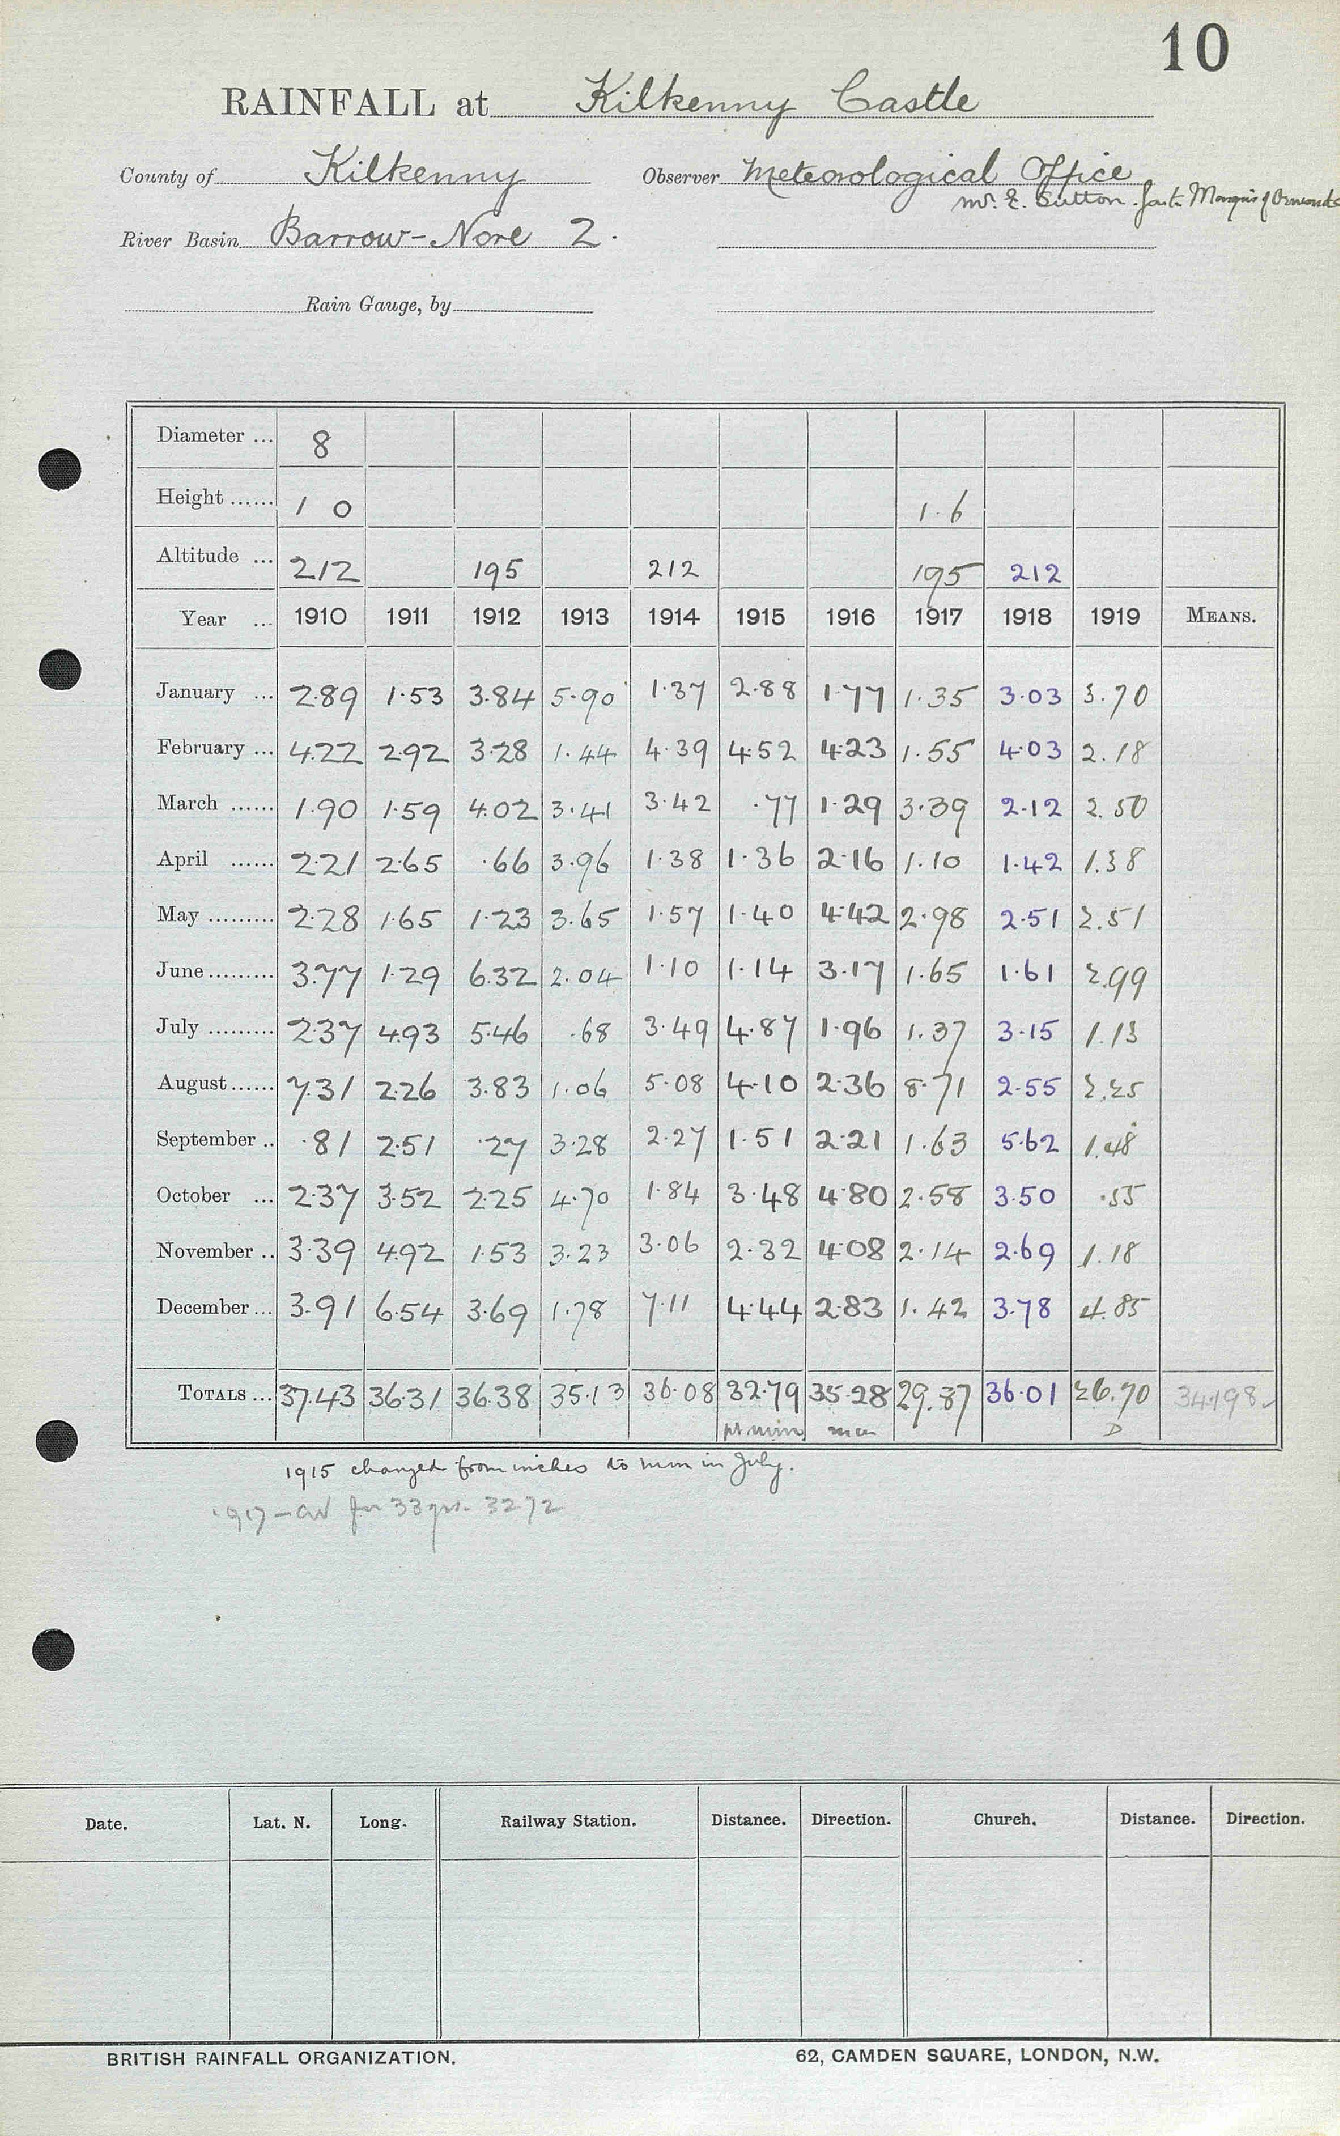 10
RAINFALL at Kilkenny Castle
County of Kilkenny Observer Meteorological Office
Mr. E. Sutton. for the Marquis of Ormonde
River Basin Barrow-Nore 2.
Rain Gauge, by
Diameter ... 8
Height ...... 1 0 1.6
Altitude ... 212 195 212 195 212
Year ... 1910 1911 1912 1913 1914 1915 1916 1917 1918 1919 MEANS.
January ... 2.89 1.53 3.84 5.90 1.37 2.88 1.77 1.35 3.03 3.70
February ... 4.22 2.92 3.28 1.44 4.39 4.52 4.23 1.55 4.03 2.18
March ...... 1.90 1.59 4.02 3.41 3.42 .77 1.29 3.39 2.12 2.50
April ...... 2.21 2.65 .66 3.96 1.38 1.36 2.16 1.10 1.42 1.38
May ......... 2.28 1.65 1.23 3.65 1.57 1.40 4.42 2.98 2.51 2.51
June ......... 3.77 1.29 6.32 2.04 1.10 1.14 3.17 1.65 1.61 2.99
July ......... 2.37 4.93 5.46 .68 3.49 4.87 1.96 1.37 3.15 1.13
August ...... 7.31 2.26 3.83 1.06 5.08 4.10 2.36 8.71 2.55 2.25
September .. .81 2.51 .27 3.28 2.27 1.51 2.21 1.63 5.62 1.48
October ... 2.37 3.52 2.25 4.70 1.84 3.48 4.80 2.58 3.50 .55
November .. 3.39 4.92 1.53 3.23 3.06 2.32 4.08 2.14 2.69 1.18
December ... 3.91 6.54 3.69 1.78 7.11 4.44 2.83 1.42 3.78 4.85
TOTALS ... 37.43 36.31 36.38 35.13 36.08 32.79 35.28 29.87 36.01 26.70 34.198
D
1915 changed from inches to mm in July.
1917 - av for 33 yrs. 32.72
Date. Lat. N. Long. Railway Station. Distance. Direction. Church. Distance. Direction.
BRITISH RAINFALL ORGANIZATION. 62, CAMDEN SQUARE, LONDON, N.W.